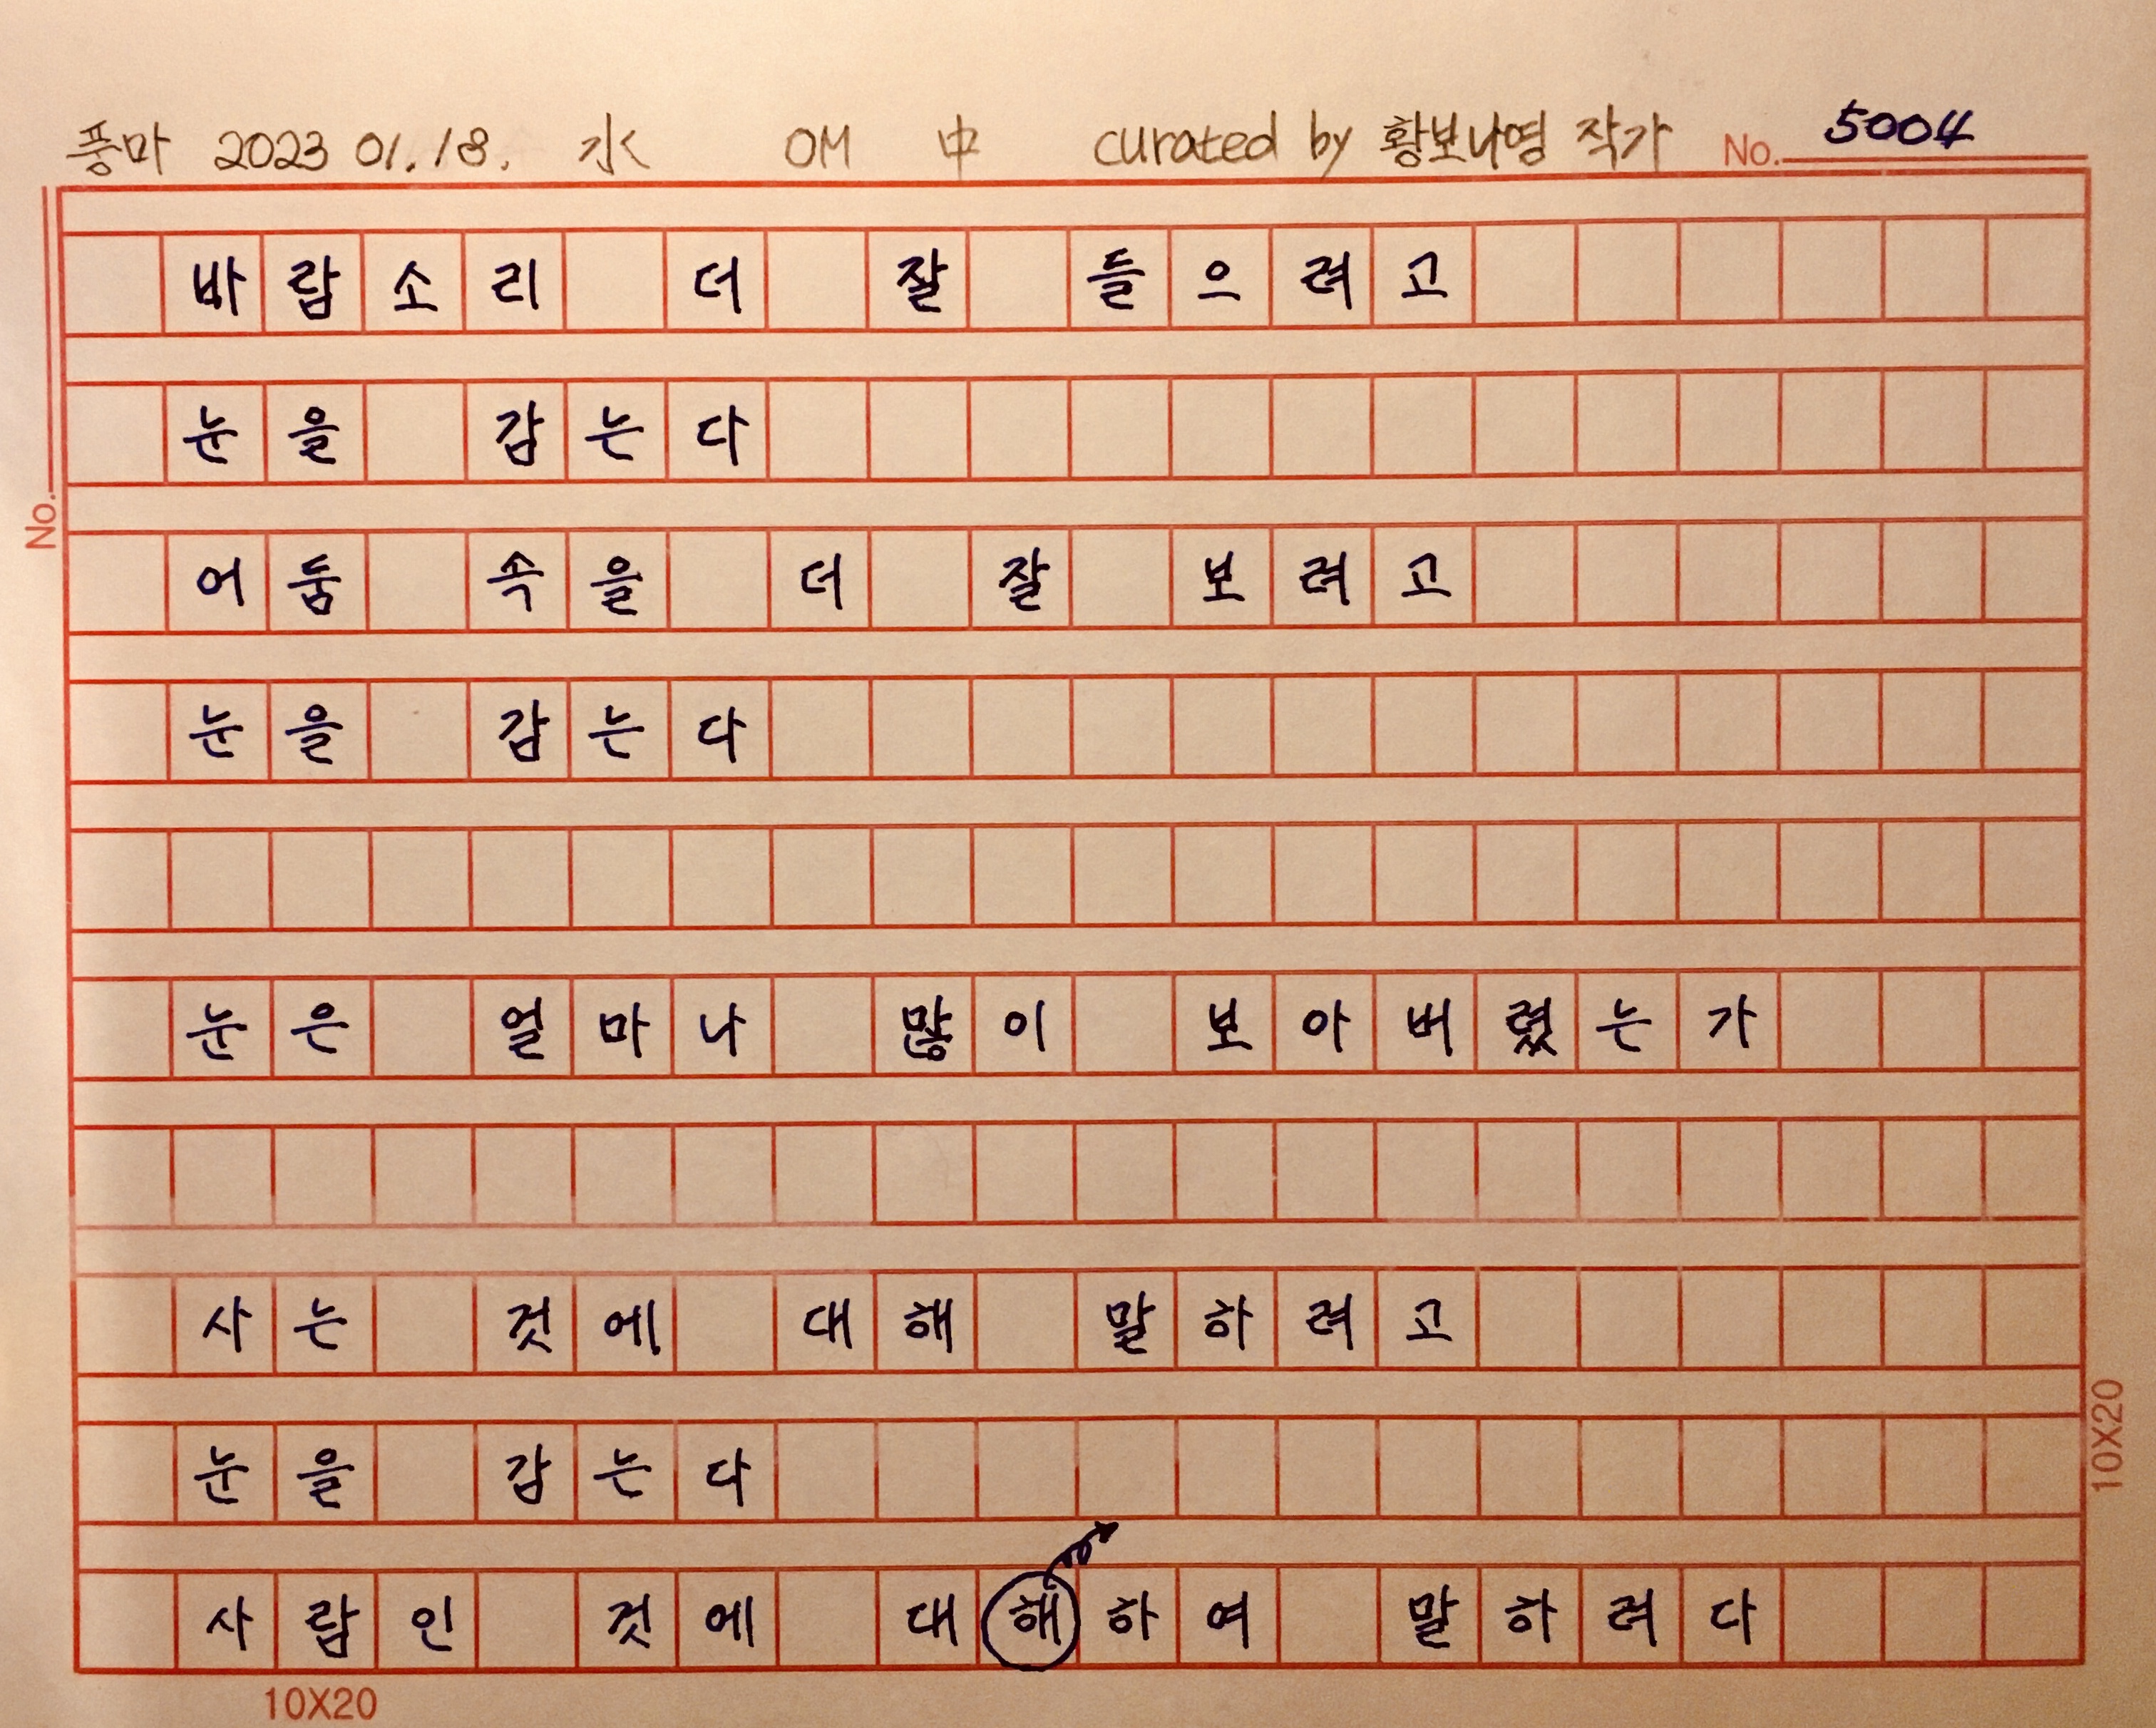 풍마 2023 01. 18. 水 OM 中 curated by 황보나영 작가 No. 5004
바람소리 더 잘 들으려고
눈을 감는다
No.
어둠 속을 더 잘 보려고
눈을 감는다
눈은 얼마나 많이 보아버렸는가
사는 것에 대해 말하려고
눈을 감는다
10X20
사람인 것에 대해하여 말하려다
10X20